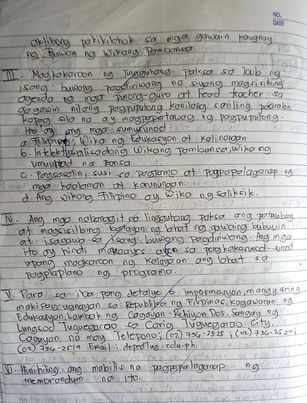 NO.
DATE
aktibong pakikilahok sa mga gawain kaugnay
ng Buwan ng Wikang Pambansa.
III. Magkakaroon ng lingguhang paksa sa loob ng
isang buwang pagdiriwang na siyang magsisilbing
agenda ng mga punong-guro at lead teacher sa
gagawin nilang pagpupulong kanilang saniling paaralan
kapag sila na ay magpapatawag ng pagpupulong
Ito ay ang mga sumusunod:
a. Filipino: Wika ng Edukasyon at Kalinangan
b. Intelektwalisadong Wikang Pambansa, Wika ng
umuunlad na Bansa.
c. Pagsasalin, susi sa pagtamo at pagpapalaganap ng
mga kaalaman at karunungan.
d. Ang wikang Filipino ay Wika ng saliksik.
IV. Ang mga nabanggit na lingguhang paksa ang
at magsisilbing batayan ng lahat ng gawaing bubuuin
at isagawa sa isang buwang pagdiriwang. Ang mga
ito ay hindi magkakasunod
upang magkaroon ng kalayaan ang lahat sa
pagpaplano ng programa.
V. Para sa iba pang detalye impormasyon, mangyaring
makipag-ugnayan sa Republika ng Pilipinas, Kagawaran ng
Edukasyon, Lambak ng Cagayan - Rehiyon Dos, Sangay ng
Lungsod Tuguegarao sa Carig, Tuguegarao City,
Cagayan na may Telepono:
Email:
VI. Hinihiling ang mabilis na pagpapalaganap ng
memorandum na ito.